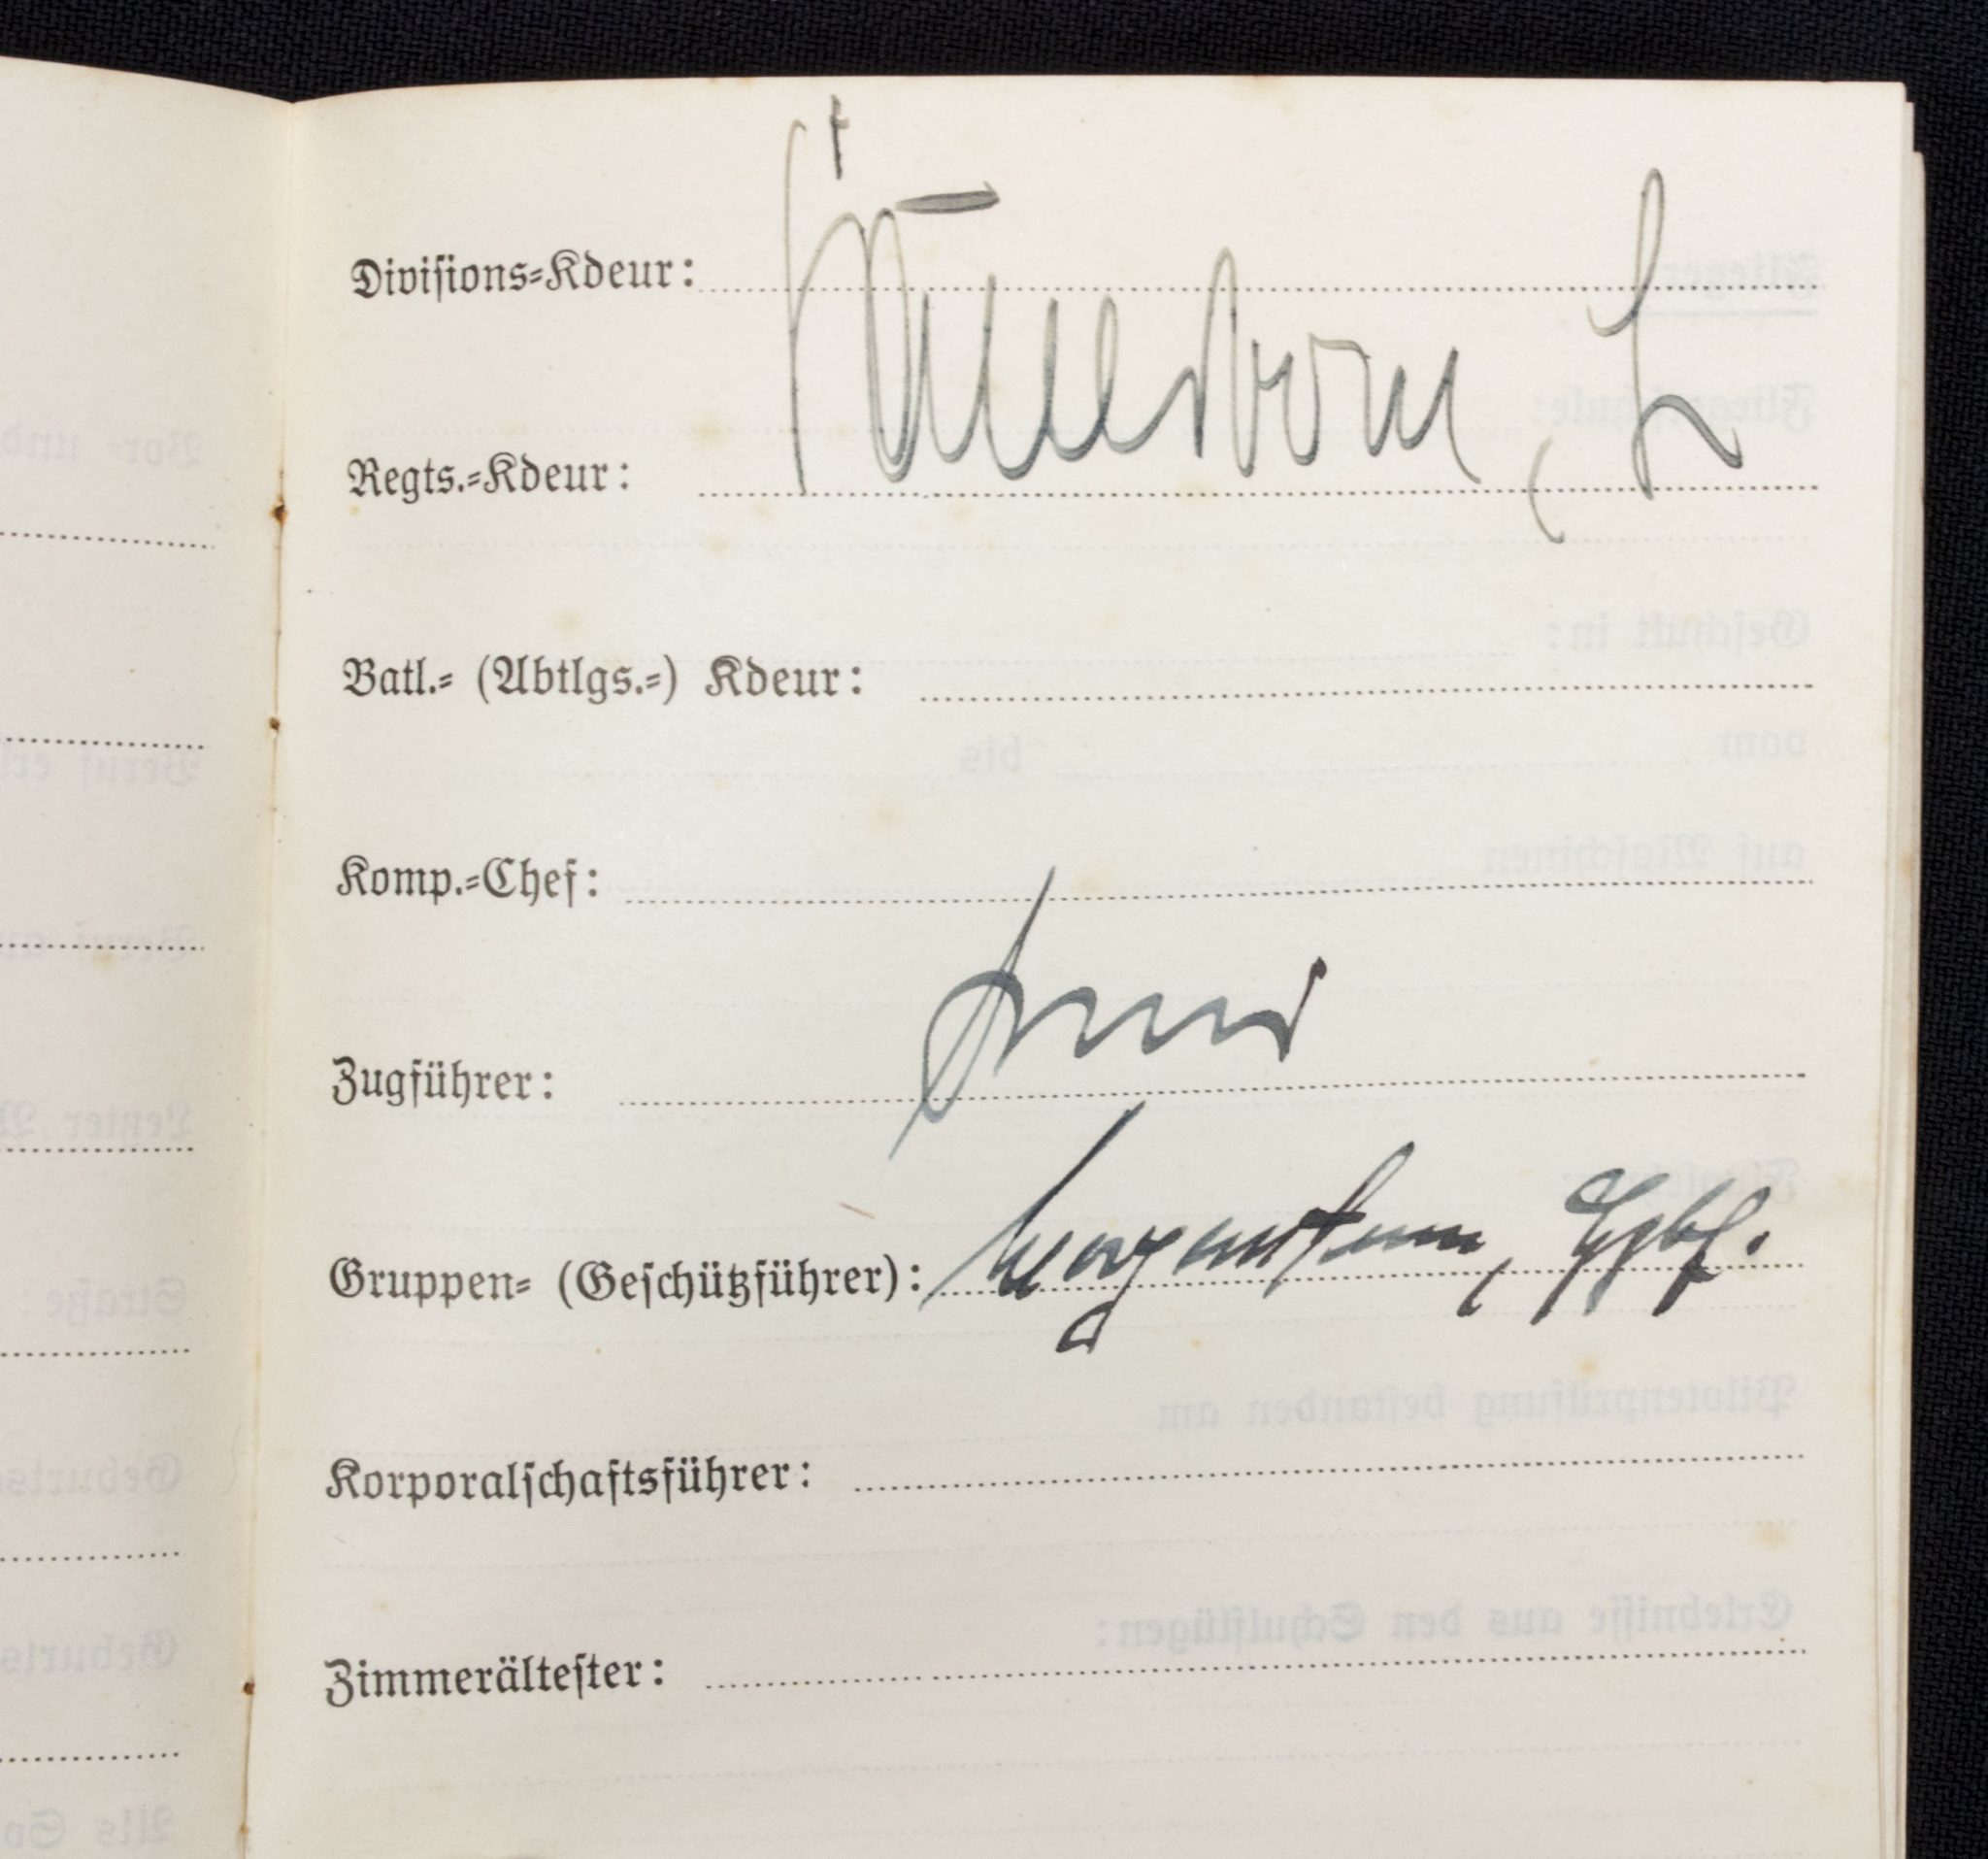 Divisions-Kdeur:
Regts.-Kdeur:
Batl.- (Abtlgs.-) Kdeur:
Komp.-Chef:
Zugführer:
Gruppen- (Geschützführer): Morgenstern
Korporalschaftsführer:
Zimmerältester: